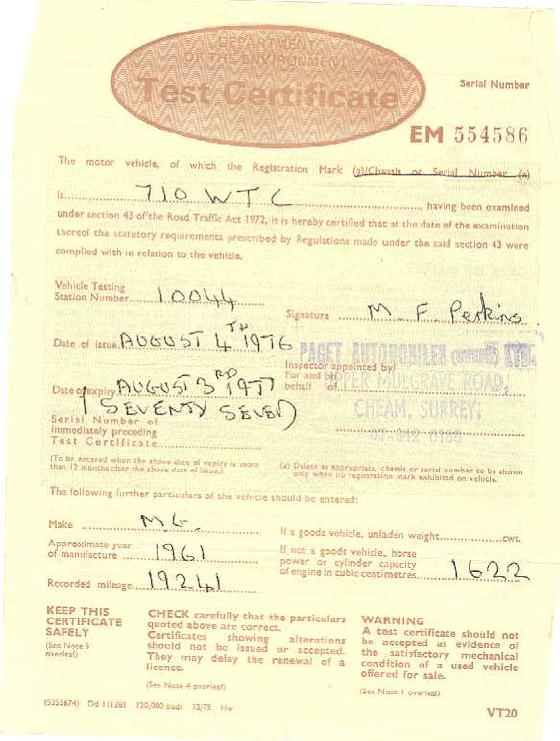 DEPARTMENT
OF THE ENVIRONMENT
Test Certificate
Serial Number
EM 554586
The motor vehicle, of which the Registration Mark (a)/Chassis or Serial Number (a)
is 710 WTC having been examined
under section 43 of the Road Traffic Act 1972, it is hereby certified that at the date of the examination
thereof the statutory requirements prescribed by Regulations made under the said section 43 were
complied with in relation to the vehicle.
Vehicle Testing
Station Number 10044
Signature M. F. Perkins
Date of issue AUGUST 4TH 1976
PAGET AUTOMOBILES LTD.
Inspector appointed by/
For and on
behalf of
UPPER MULGRAVE ROAD,
CHEAM, SURREY.
Date of expiry AUGUST 3RD 1977
(SEVENTY SEVEN)
Serial Number of
immediately preceding
Test Certificate
(To be entered when the above date of expiry is more
than 12 months after the above date of issue.)
(a) Delete as appropriate, chassis or serial number to be shown
only when no registration mark exhibited on vehicle.
The following further particulars of the vehicle should be entered:
Make M.G.
If a goods vehicle, unladen weight cwt.
Approximate year
of manufacture 1961
If not a goods vehicle, horse
power or cylinder capacity
of engine in cubic centimetres 1622
Recorded mileage 19241
KEEP THIS
CERTIFICATE
SAFELY
(See Note 5
overleaf)
CHECK carefully that the particulars
quoted above are correct.
Certificates showing alterations
should not be issued or accepted.
They may delay the renewal of a
licence.
(See Note 4 overleaf)
WARNING
A test certificate should not
be accepted as evidence of
the satisfactory mechanical
condition of a used vehicle
offered for sale.
(See Note 1 overleaf)
(5355674) Dd 111381 120,000 pads 12/75 Hw
VT20